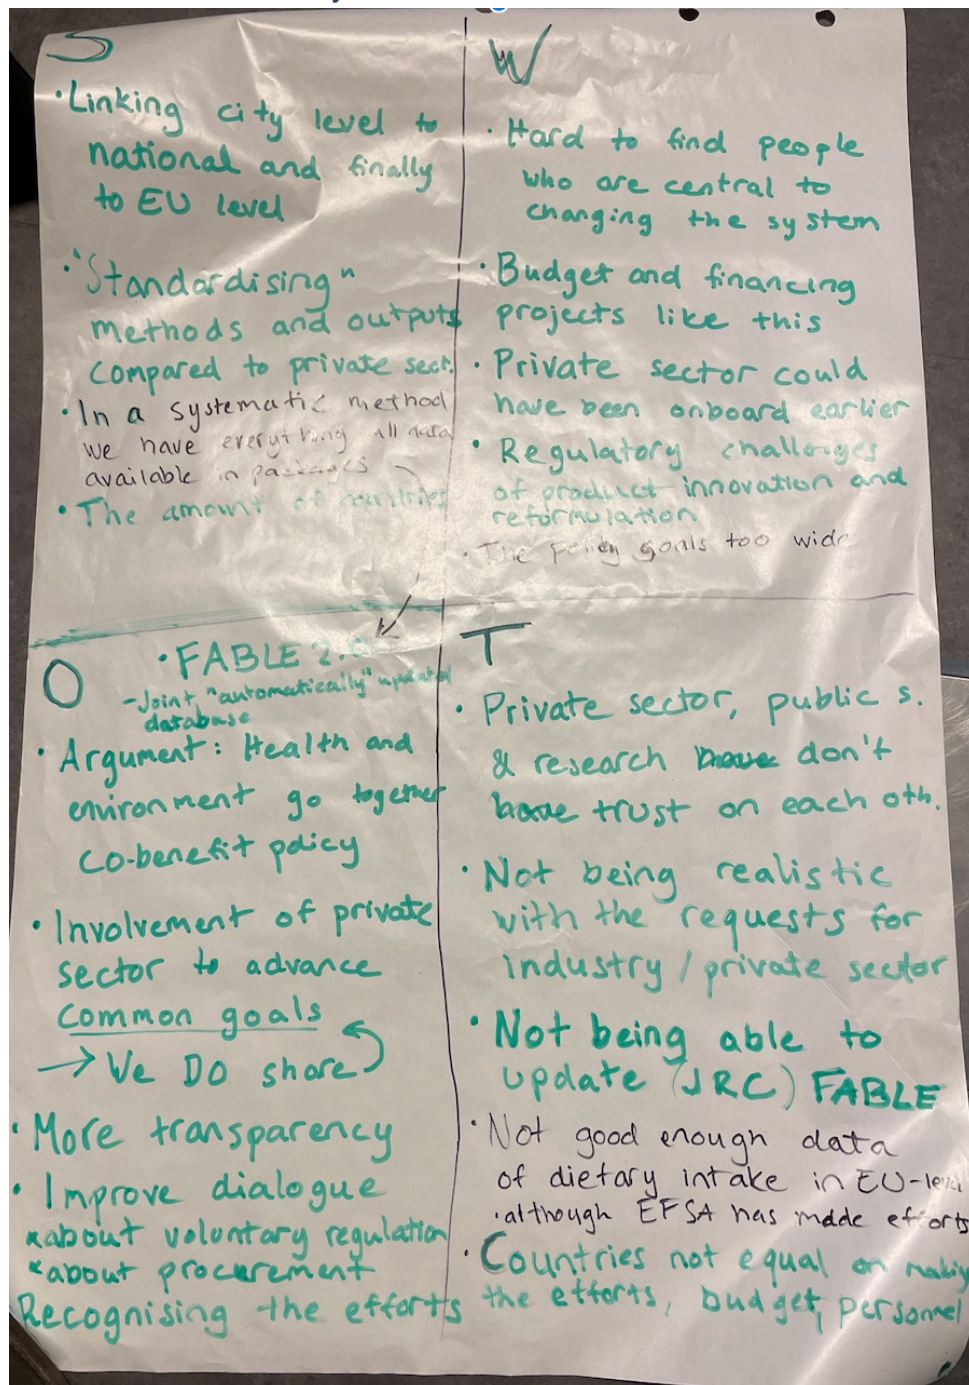 S
• Linking city level to
national and finally
to EU level
• "Standardising"
methods and outputs
compared to private sect.
• In a systematic method
we have everything, all data
available in packages
• The amount of countries
W
• Hard to find people
who are central to
changing the system
• Budget and financing
projects like this
• Private sector could
have been onboard earlier
• Regulatory challenges
of product innovation and
reformulation
• The policy goals too wide
O
• FABLE 2.0
- Joint, "automatically" updated
database
• Argument: Health and
environment go together
co-benefit policy
• Involvement of private
sector to advance
common goals
→ We DO share
• More transparency
• Improve dialogue
*about voluntary regulation
*about procurement
Recognising the efforts
T
• Private sector, public s.
& research have don't
have trust on each oth.
• Not being realistic
with the requests for
industry / private sector
• Not being able to
update (JRC) FABLE
• Not good enough data
of dietary intake in EU-level
• although EFSA has made efforts
• Countries not equal on making
the efforts, budget, personnel